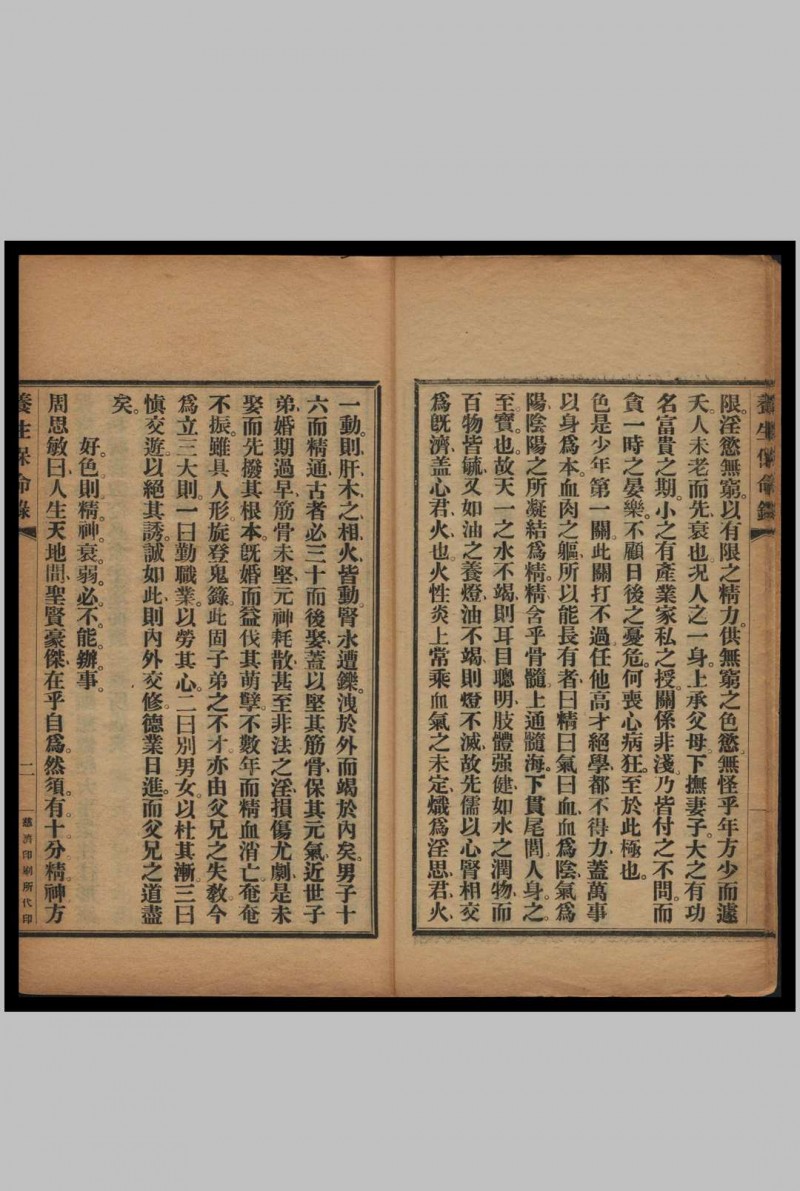 養生保命錄
限。淫慾無窮。以有限之精力。供無窮之色慾。無怪乎年方少而遽
夭。人未老而先衰也。况人之一身。上承父母。下撫妻子。大之有功
名富貴之期。小之有產業家私之授。關係非淺。乃皆付之不問。而
貪一時之晏樂。不顧日後之憂危。何喪心病狂。至於此極也。
色是少年第一關。此關打不過。任他高才絕學。都不得力。蓋萬事
以身爲本。血肉之軀。所以能長有者。曰精曰氣曰血。血爲陰。氣爲
陽。陰陽之所凝結爲精。精含乎骨髓。上通髓海。下貫尾閭。人身之
至寶也。故天一之水不竭。則耳目聰明。肢體强健。如水之潤物。而
百物皆毓。又如油之養燈。油不竭則燈不滅。故先儒以心腎相交
爲旣濟。盖心君火也。火性炎上。常乘血氣之未定。熾爲淫思。君火
一動。則肝木之相火皆動。腎水遭鑠。洩於外而竭於內矣。男子十
六而精通。古者必三十而後娶。蓋以堅其筋骨。保其元氣。近世子
弟。婚期過早。筋骨未堅。元神耗散。甚至非法之淫。損傷尤劇。是未
娶而先撥其根本。旣婚而益伐其萌孽。不數年而精血消亡。奄奄
不振。雖具人形。旋登鬼籙。此固子弟之不才。亦由父兄之失敎。今
爲立三大則。一曰勤職業。以勞其心。二曰別男女。以杜其漸。三曰
愼交遊。以絕其誘。誠如此。則內外交修。德業日進。而父兄之道盡
矣。
好。色。則。精。神。衰。弱。必。不。能。辦。事。
周思敏曰。人生天地間。聖賢豪傑。在乎自爲。然須。有。十分精。神。方
養生保命錄
二
慈濟印刷所代印